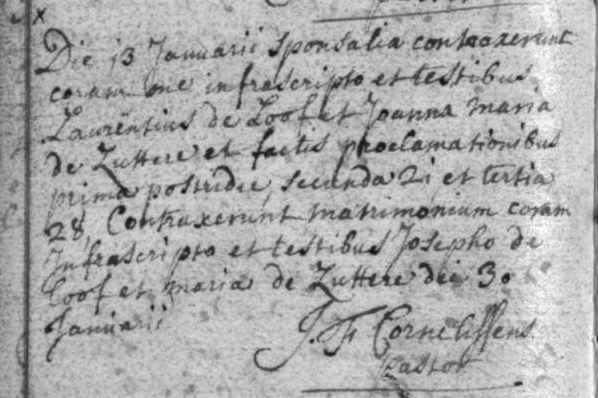 x
Die 13 Januarii sponsalia contraxerunt
coram me infrascripto et testibus
Laurentius de Loof et Joanna maria
de Zuttere et factis proclamationibus
prima postridie, secunda 21 et tertia
28, Contraxerunt matrimonium coram
Infrascripto et testibus Josepho de
Loof et maria de Zuttere die 30
Januarii
J. F Cornelissens
Pastor